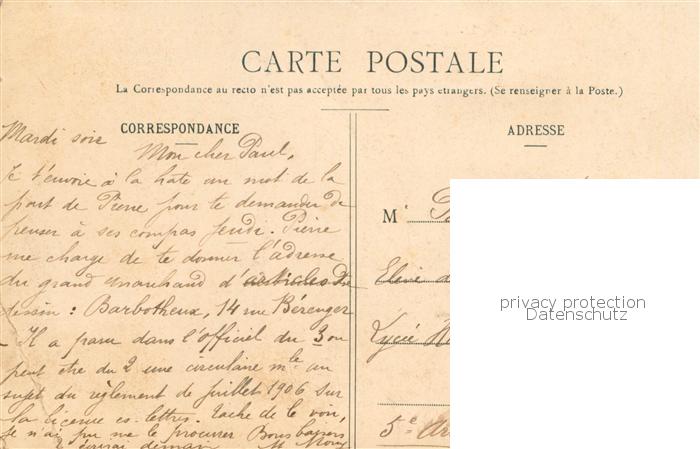 CARTE POSTALE
La Correspondance au recto n'est pas acceptée par tous les pays étrangers. (Se renseigner à la Poste.)
CORRESPONDANCE
Mardi soir
Mon cher Paul,
Je t'envoie à la hate un mot de la
part de Pierre pour te demander de
penser à ses compas jeudi. Pierre
me charge de te donner l'adresse
du grand marchand d'articles de
dessin : Barbotheux, 14 rue Béranger
- Il a paru dans l'officiel du 3 ou
peut etre du 2 une circulaire mle au
sujet du règlement de juillet 1906 sur
la licence es-lettres. Tache de le voir,
je n'ai pu me le procurer Bons baisers
écrirai demain
ADRESSE
M
Elève
Lycée
5e Ar
privacy protection
Datenschutz